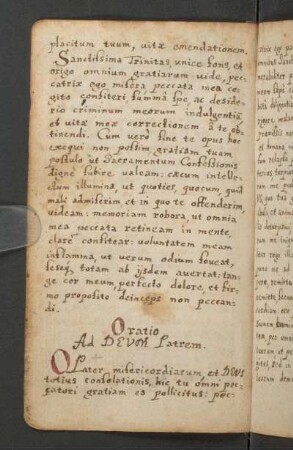 placitum tuum, vitæ emendationem.
Sanctissima Trinitas, unice fons, et
origo omnium gratiarum vide, pec-
catrix ego misera peccata mea co-
gito confiteri, summa spe, ac deside-
rio criminum meorum indulgentiā
et vitæ meæ correctionem à te ob-
tinendi. Cum vero sine te opus hoc
exequi non possim, gratiam tuam
postulo ut Sacramentum Confessionis
digne subire valeam: cæcum intelle-
ctum illumina, ut quoties, quocum, quid
male admiserim et in quo te offenderim,
videam: memoriam robora, ut omnia
mea peccata retineam in mente,
clare confitear: voluntatem meam
inflamma, ut verum odium foveat,
seseq́ totam ab ijsdem avertat: tan-
ge cor meum, perfecto dolore, et fir-
mo proposito deinceps non peccan-
di.
Oratio
Ad DEUM Patrem.
O Pater misericordiarum, et DEUS
totius consolationis, hic tu omni pec-
catori gratiam es pollicitus: pec-